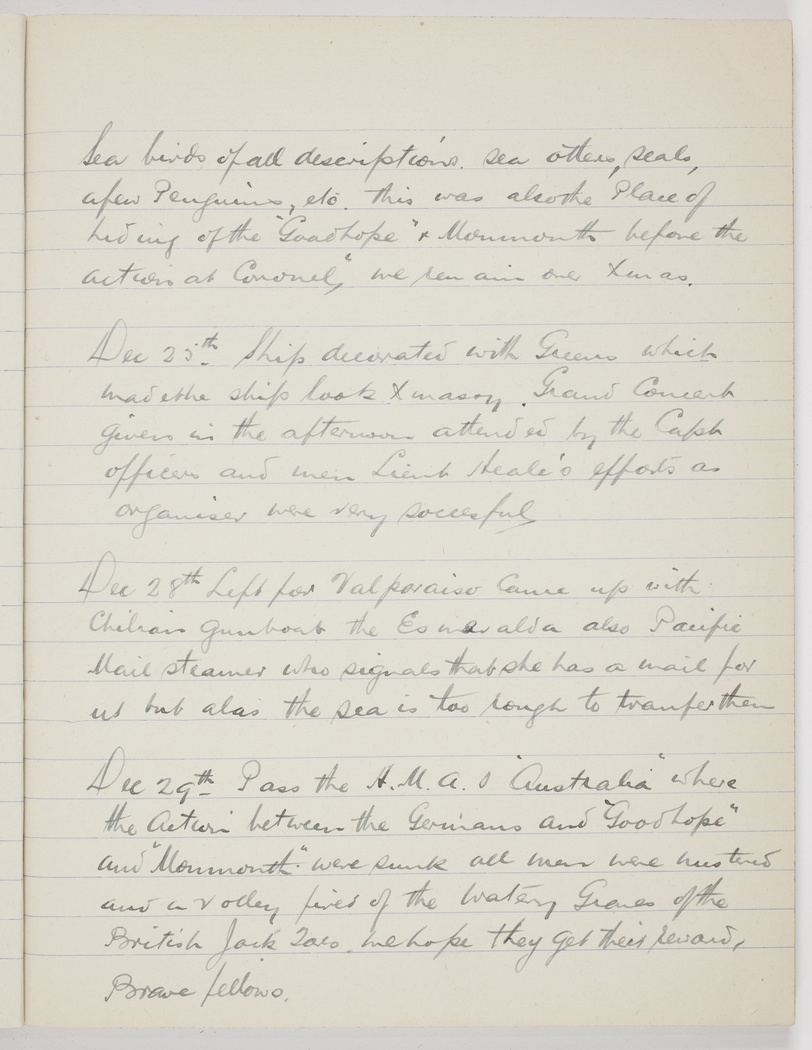 Sea birds of all descriptions. sea otters, seals,
a few Penguins, etc. this was also the Place of
hiding of the "Goodhope" & Monmonth before the
action at Coronel," we remain over Xmas.
Dec 25th. Ship decorated with Greens which
made the ship look Xmasey. Grand Concert
given in the afternoon attended by the Capt
officers and men Lieut Heale's efforts as
organiser were very soccesful
Dec 28th Left for Valparaiso Came up with
Chilian gunboat the Esmeralda also Pacific
Mail steamer who signals that she has a mail for
us but alas the sea is too rough to tranfer them
Dec 29th Pass the H.M.A.S "Australia" where
the Action between the Germans and "Goodhope"
and "Monmonth" were sunk all men were mustered
and a volley fired of the Watery Graves of the
British Jack Tars. we hope they get their reward,
Brave fellows.